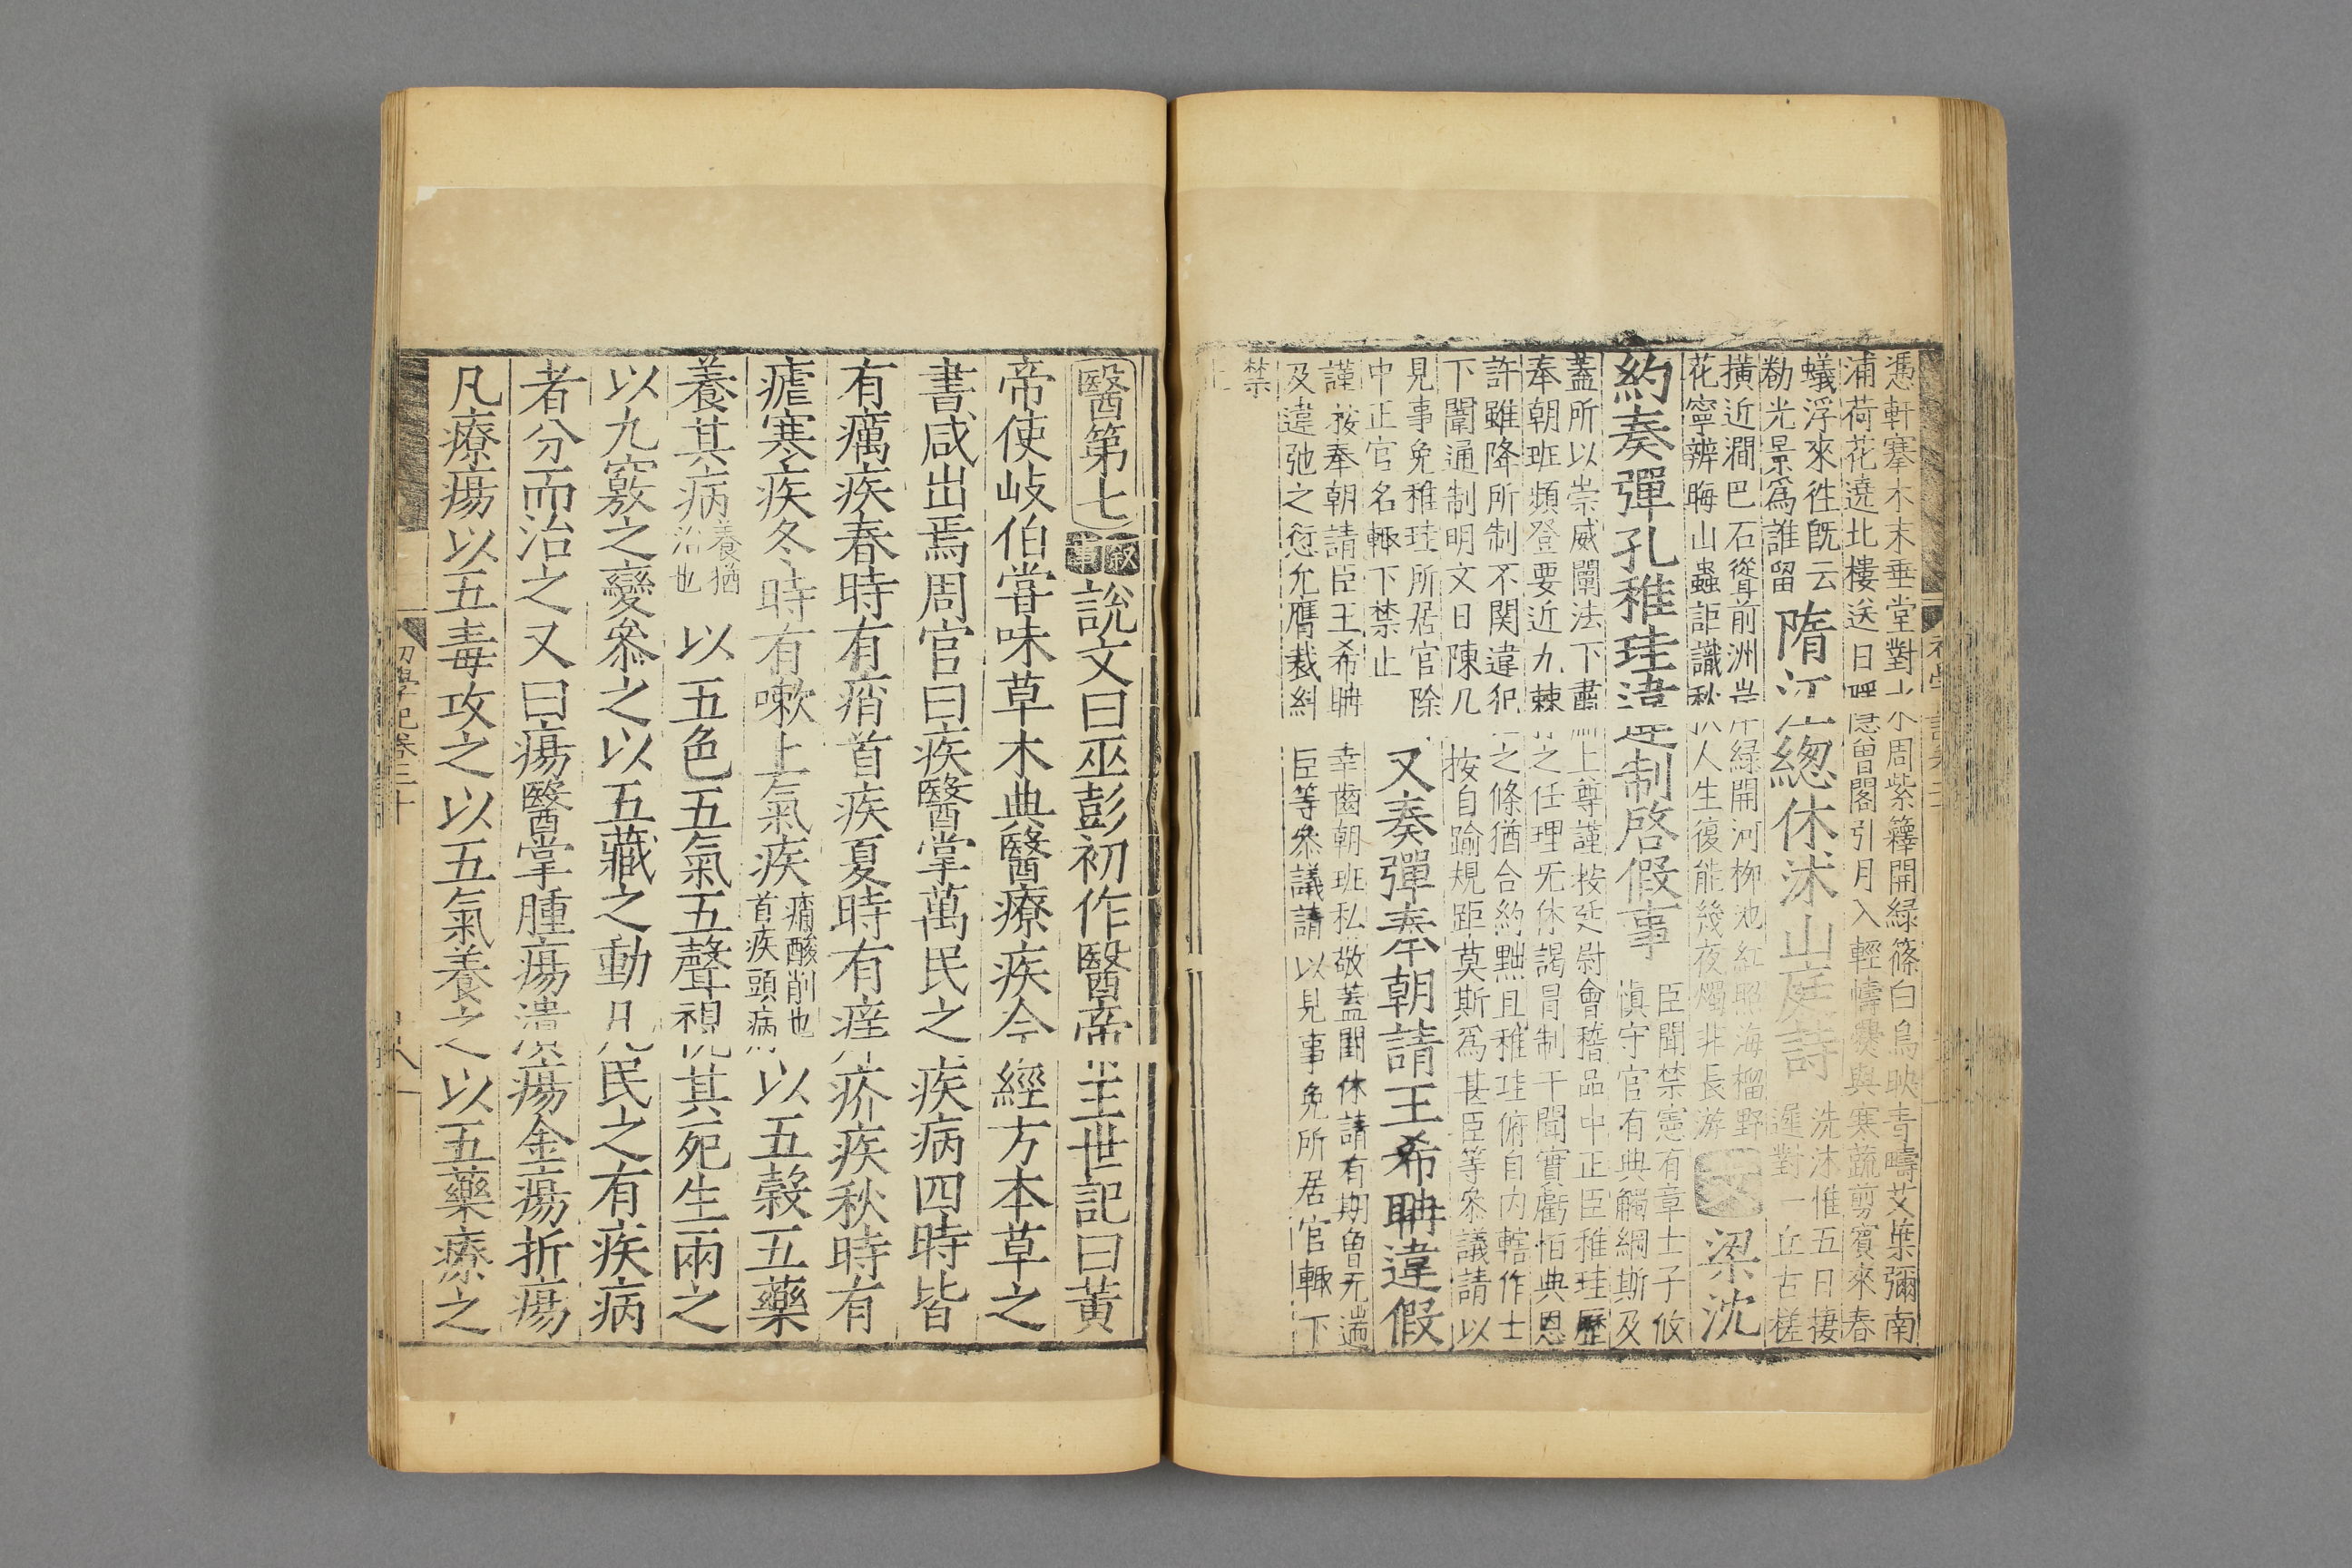 憑軒搴木末垂堂對小周紫籜開綠篠白鳥映青疇艾葉彌南
浦荷花遶北樓送日隱曾閣引月入輕幬爨與寒蔬剪賓來春
蟻浮來往旣云
勌光景爲誰留
隋江總休沐山庭詩
洗沐惟五日棲
遲對一丘古槎
橫近澗巴石聳前洲岸綠開河柳池紅照海榴野
花寧辨晦山蟲詎識秋人生復能幾夜燭非長游
梁沈
約奏彈孔稚珪違制啓假事
臣聞禁憲有章士子攸
愼守官有典觸網斯及
蓋所以崇威闡法下肅上尊謹按廷尉會稽品中正臣稚珪歷
奉朝班頻登要近九棘之任理无休謁冐制干聞實虧恒典恩
許雖降所制不関違犯之條猶合約黜且稚珪俯自内轄作士
下闈通制明文日陳几按自踰規距莫斯爲甚臣等叅議請以
見事免稚珪所居官除
中正官名輙下禁止
又奏彈奉朝請王希聃違假
謹按奉朝請臣王希聃幸齒朝班私敬蓋闕休請有期曽无遄
及違弛之愆允膺裁糾臣等叅議請以見事免所居官輙下
禁
止
醫第七
叙事
說文曰巫彭初作醫帝王世記曰黃
帝使岐伯甞味草木典醫療疾今經方本草之
書咸出焉周官曰疾醫掌萬民之疾病四時皆
有癘疾春時有痟首疾夏時有痒疥疾秋時有
瘧寒疾冬時有嗽上氣疾
痟酸削也
首疾頭病
以五穀五藥
養其病
養猶
治也
以五色五氣五聲視其死生兩之
以九竅之變叅之以五藏之動凡民之有疾病
者分而治之又曰瘍醫掌腫瘍潰瘍金瘍折瘍
凡療瘍以五毒攻之以五氣養之以五藥療之
初學記卷二十